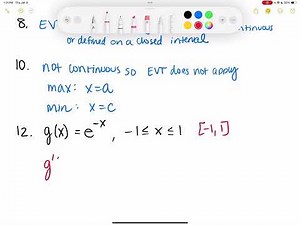 8. EVT
or defined on a closed interval
10. not continuous so EVT does not apply
max: x=a
min: x=c
12. g(x) = e^-x, -1 ≤ x ≤ 1 [-1, 1]
g'